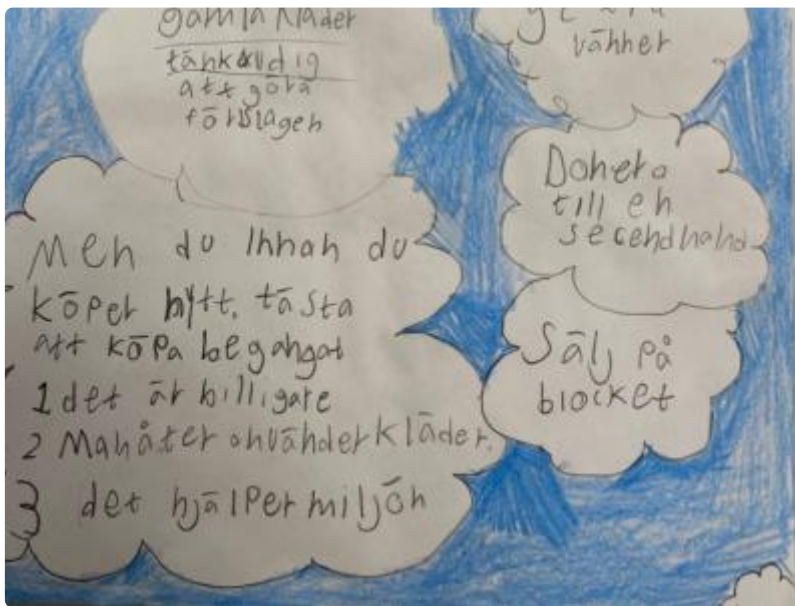 gamla kläder
tänkvudig
att göra
förslagen
vänner
Donera
till en
secendhand
Men du Innan du
köper nytt. tästa
att köpa begangat
1 det är billigare
2 Man åter använder kläder.
3 det hjälper miljön
Sälj på
blocket